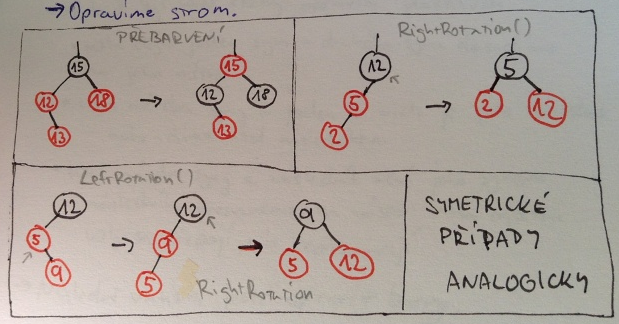 → Opravíme strom.
PŘEBARVENÍ
15
12 18
13
→
15
12 18
13
RightRotation()
12
5
2
→
5
2 12
LeftRotation()
12
5
9
→
12
9
5
→
9
5 12
RightRotation
SYMETRICKÉ
PŘÍPADY
ANALOGICKY